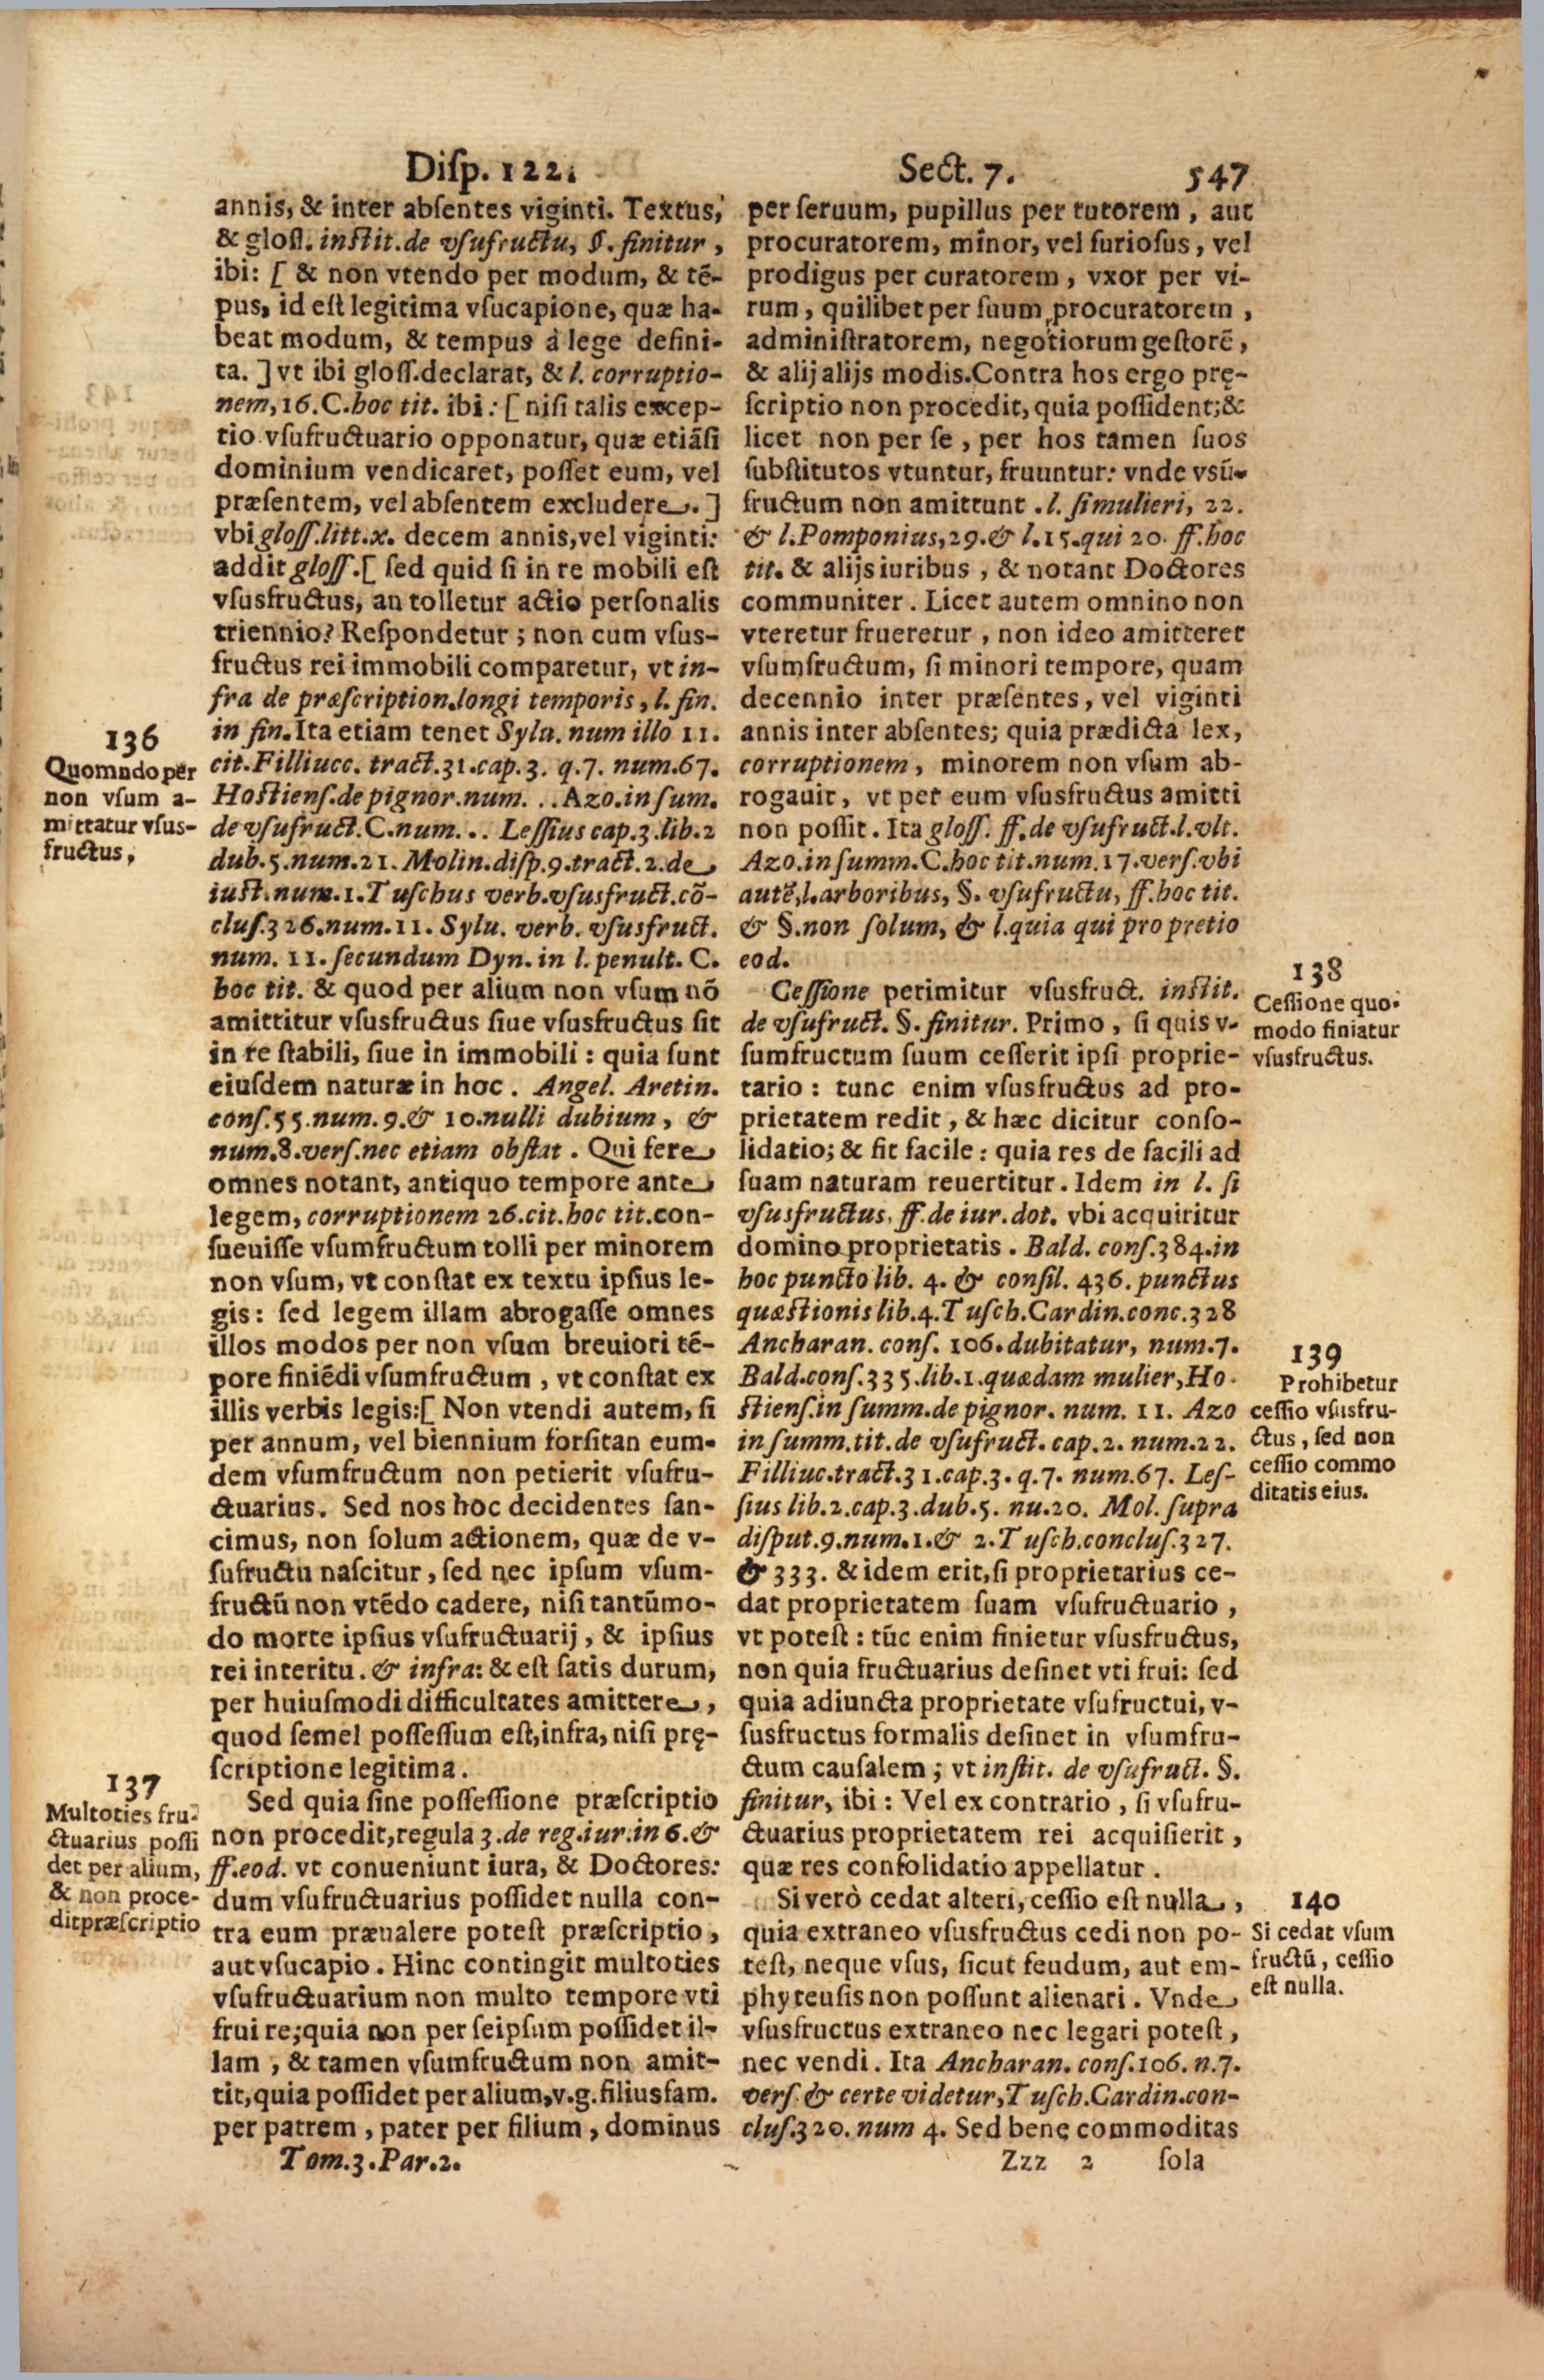 Disp. 122. Sect. 7. 547
annis, & inter absentes viginti. Textus,
& glos. instit. de vsufructu, §. finitur,
ibi: [ & non vtendo per modum, & tẽ-
pus, id est legitima vsucapione, quæ ha-
beat modum, & tempus à lege defini-
ta. ] vt ibi gloss. declarat, & l. corruptio-
nem, 16. C. hoc tit. ibi: [ nisi talis excep-
tio vsufructuario opponatur, quæ etiãsi
dominium vendicaret, posset eum, vel
præsentem, vel absentem excludere. ]
vbi gloss. litt. x. decem annis, vel viginti:
addit gloss. [ sed quid si in re mobili est
vsusfructus, an tolletur actio personalis
triennio? Respondetur; non cum vsus-
fructus rei immobili comparetur, vt in-
fra de præscription. longi temporis, l. fin.
in fin. Ita etiam tenet Sylu. num illo 11.
cit. Filliucc. tract. 31. cap. 3. q. 7. num. 67.
Hostiens. de pignor. num. . . Azo. in sum.
de vsufruct. C. num. . . Lessius cap. 3. lib. 2
dub. 5. num. 21. Molin. disp. 9. tract. 2. de
iust. num. 1. Tuschus verb. vsusfruct. cõ-
clus. 326. num. 11. Sylu. verb. vsusfruct.
num. 11. secundum Dyn. in l. penult. C.
hoc tit. & quod per alium non vsum nõ
amittitur vsusfructus siue vsusfructus sit
in re stabili, siue in immobili: quia sunt
eiusdem naturæ in hoc. Angel. Aretin.
cons. 55. num. 9. & 10. nulli dubium, &
num. 8. vers. nec etiam obstat. Qui fere
omnes notant, antiquo tempore ante
legem, corruptionem 26. cit. hoc tit. con-
sueuisse vsumfructum tolli per minorem
non vsum, vt constat ex textu ipsius le-
gis: sed legem illam abrogasse omnes
illos modos per non vsum breuiori tẽ-
pore finiẽdi vsumfructum, vt constat ex
illis verbis legis: [ Non vtendi autem, si
per annum, vel biennium forsitan eum-
dem vsumfructum non petierit vsufru-
ctuarius. Sed nos hoc decidentes san-
cimus, non solum actionem, quæ de v-
sufructu nascitur, sed nec ipsum vsum-
fructũ non vtẽdo cadere, nisi tantũmo-
do morte ipsius vsufructuarij, & ipsius
rei interitu. & infra: & est satis durum,
per huiusmodi difficultates amittere,
quod semel possessum est, infra, nisi prę-
scriptione legitima.
Sed quia sine possessione præscriptio
non procedit, regula 3. de reg. iur. in 6. &
ff. eod. vt conueniunt iura, & Doctores:
dum vsufructuarius possidet nulla con-
tra eum præualere potest præscriptio,
aut vsucapio. Hinc contingit multoties
vsufructuarium non multo tempore vti
frui re; quia non per seipsum possidet il-
lam, & tamen vsumfructum non amit-
tit, quia possidet per alium, v.g. filiusfam.
per patrem, pater per filium, dominus
Tom. 3. Par. 2.
136
Quomodo per
non vsum a-
mittatur vsus-
fructus,
137
Multoties fru-
ctuarius possi
det per alium,
& non proce-
dit præscriptio
per seruum, pupillus per tutorem, aut
procuratorem, minor, vel furiosus, vel
prodigus per curatorem, vxor per vi-
rum, quilibet per suum procuratorem,
administratorem, negotiorum gestorẽ,
& alij alijs modis. Contra hos ergo prę-
scriptio non procedit, quia possident; &
licet non per se, per hos tamen suos
substitutos vtuntur, fruuntur: vnde vsũ-
fructum non amittunt. l. si mulieri, 22.
& l. Pomponius, 29. & l. 15. qui 20. ff. hoc
tit. & alijs iuribus, & notant Doctores
communiter. Licet autem omnino non
vteretur frueretur, non ideo amitteret
vsumfructum, si minori tempore, quam
decennio inter præsentes, vel viginti
annis inter absentes; quia prædicta lex,
corruptionem, minorem non vsum ab-
rogauit, vt per eum vsusfructus amitti
non possit. Ita gloss. ff. de vsufruct. l. vlt.
Azo. in summ. C. hoc tit. num. 17. vers. vbi
autẽ, l. arboribus, §. vsufructu, ff. hoc tit.
& §. non solum, & l. quia qui pro pretio
eod.
Cessione perimitur vsusfruct. instit.
de vsufruct. §. finitur. Primo, si quis v-
sumfructum suum cesserit ipsi proprie-
tario: tunc enim vsusfructus ad pro-
prietatem redit, & hæc dicitur conso-
lidatio; & fit facile: quia res de facili ad
suam naturam reuertitur. Idem in l. si
vsusfructus, ff. de iur. dot. vbi acquiritur
domino proprietatis. Bald. cons. 384. in
hoc puncto lib. 4. & consil. 436. punctus
quæstionis lib. 4. Tusch. Cardin. conc. 328
Ancharan. cons. 106. dubitatur, num. 7.
Bald. cons. 335. lib. 1. quædam mulier, Ho-
stiens. in summ. de pignor. num. 11. Azo
in summ. tit. de vsufruct. cap. 2. num. 22.
Filliuc. tract. 31. cap. 3. q. 7. num. 67. Les-
sius lib. 2. cap. 3. dub. 5. nu. 20. Mol. supra
disput. 9. num. 1. & 2. Tusch. conclus. 327.
& 333. & idem erit, si proprietarius ce-
dat proprietatem suam vsufructuario,
vt potest: tũc enim finietur vsusfructus,
non quia fructuarius desinet vti frui: sed
quia adiuncta proprietate vsufructui, v-
susfructus formalis desinet in vsumfru-
ctum causalem; vt instit. de vsufruct. §.
finitur, ibi: Vel ex contrario, si vsufru-
ctuarius proprietatem rei acquisierit,
quæ res consolidatio appellatur.
Si verò cedat alteri, cessio est nulla,
quia extraneo vsusfructus cedi non po-
test, neque vsus, sicut feudum, aut em-
phyteusis non possunt alienari. Vnde
vsusfructus extraneo nec legari potest,
nec vendi. Ita Ancharan. cons. 106. n. 7.
vers. & certe videtur, Tusch. Cardin. con-
clus. 320. num 4. Sed bene commoditas
Zzz 2 sola
138
Cessione quo-
modo finiatur
vsusfructus.
139
Prohibetur
cessio vsusfru-
ctus, sed non
cessio commo
ditatis eius.
140
Si cedat vsum
fructũ, cessio
est nulla.